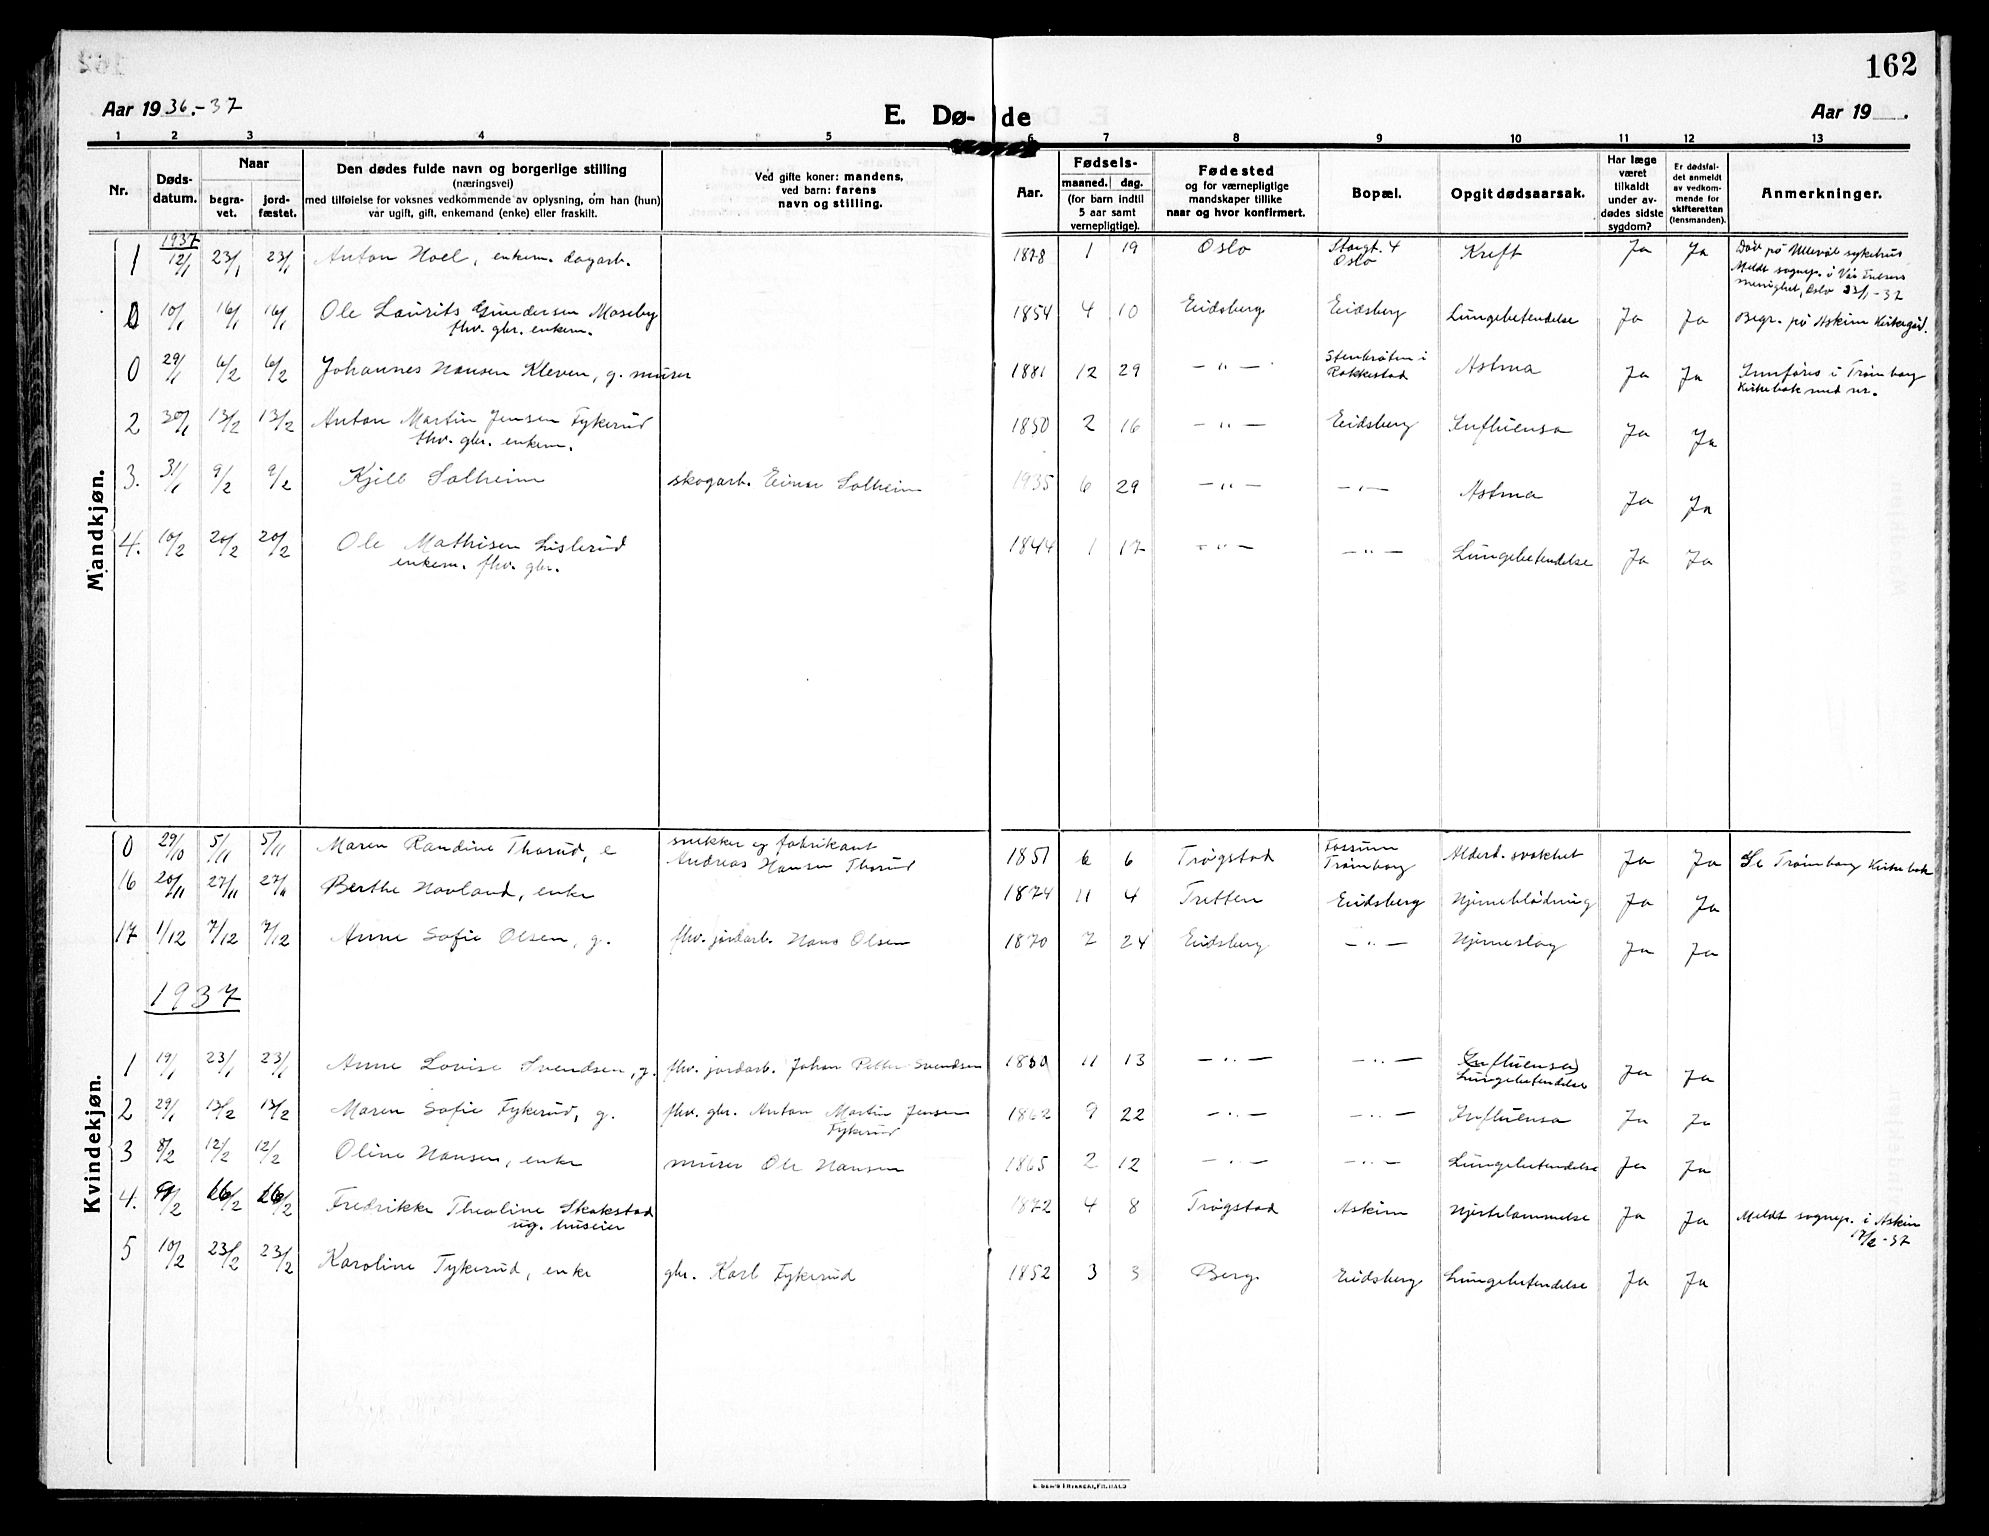 162
Aar 1936.-37
E. Dø-de
Aar 19 .
1 2 3 4 5 6 7 8 9 10 11 12 13
Nr.
Døds-
datum.
Naar
begra-
vet.
jord-
fæstet.
Den dødes fulde navn og borgerlige stilling
(næringsvei)
med tilføielse for voksnes vedkommende av oplysning, om han (hun)
var ugift, gift, enkemand (enke) eller fraskilt.
Ved gifte koner: mandens,
ved barn: farens
navn og stilling.
Aar.
Fødsels-
maaned. dag.
(for barn indtil
5 aar samt
vernepligtige).
Fødested
og for værnepligtige
mandskaper tillike
naar og hvor konfirmert.
Bopæl.
Opgit dødsaarsak.
Har læge
været
tilkaldt
under av-
dødes sidste
sygdom?
Er dødsfal-
det anmeldt
av vedkom-
mende for
skifteretten
(lensmanden).
Anmerkninger.
Mandkjøn.
1937
1 12/1 23/1 23/1 Anton Hoel, enkem. dagarb. 1878 1 19 Oslo Storgt. 4 Oslo Kreft Ja Ja Død på Ullevål sykehus
Meldt sognep. i Vår Frelsers
menighet, Oslo 23/1-37
0 10/1 16/1 16/1 Ole Laurits Gundersen Moseby 1854 4 10 Eidsberg Eidsberg Lungebetendelse Ja Ja Begr. på Askim Kirkegård.
fhv. gbr. enkem.
0 29/1 6/2 6/2 Johannes Hansen Kleven, g. murer 1881 12 29 — " — Stenbråten i Rakkestad Astma Ja Ja Innføres i Trømborg
Kirkebok med nr.
2 30/1 13/2 13/2 Anton Martin Jensen Fykerud 1850 2 16 — " — Eidsberg Influensa Ja Ja
fhv. gbr. enkem.
3. 31/1 9/2 9/2 Kjell Solheim skogarb. Einar Solheim 1935 6 29 — " — — " — Astma Ja Ja
4. 10/2 20/2 20/2 Ole Mathisen Lislerud 1844 1 17 — " — — " — Lungebetendelse Ja Ja
enkem. fhv. gbr.
Kvindekjøn.
0 29/10 5/11 5/11 Maren Randine Thorud, e snekker og fabrikant Andreas Hansen Thorud 1851 6 6 Trøgstad Fossum Trømborg Alderd. svakhet Ja Ja Se Trømborg Kirkebok
16 20/11 27/11 27/11 Berthe Hovland, enke 1874 11 4 Tretten Eidsberg Hjerneblødning Ja Ja
17 1/12 7/12 7/12 Anne Sofie Olsen, g. fhv. jordarb. Hans Olsen 1870 7 24 Eidsberg — " — Hjerneslag Ja Ja
1937
1 19/1 23/1 23/1 Anne Lovise Svendsen, g. fhv. jordarb. Johan Petter Svendsen 1860 11 13 — " — — " — (Influensa) Lungebetendelse Ja Ja
2 29/1 13/2 13/2 Maren Sofie Fykerud, g. fhv. gbr. Anton Martin Jensen Fykerud 1862 9 22 — " — — " — Influensa Ja Ja
3 8/2 12/2 12/2 Oline Hansen, enke murer Ole Hansen 1865 2 12 — " — — " — Lungebetendelse Ja Ja
4. 9/2 16/2 16/2 Fredrikke Theoline Skakstad 1872 4 8 Trøgstad Askim Hjertelammelse Ja Ja Meldt sognep. i Askim
ug. huseier 17/2-37
5 10/2 23/2 23/2 Karoline Fykerud, enke gbr. Karl Fykerud 1852 3 3 Berg. Eidsberg Lungebetendelse Ja Ja